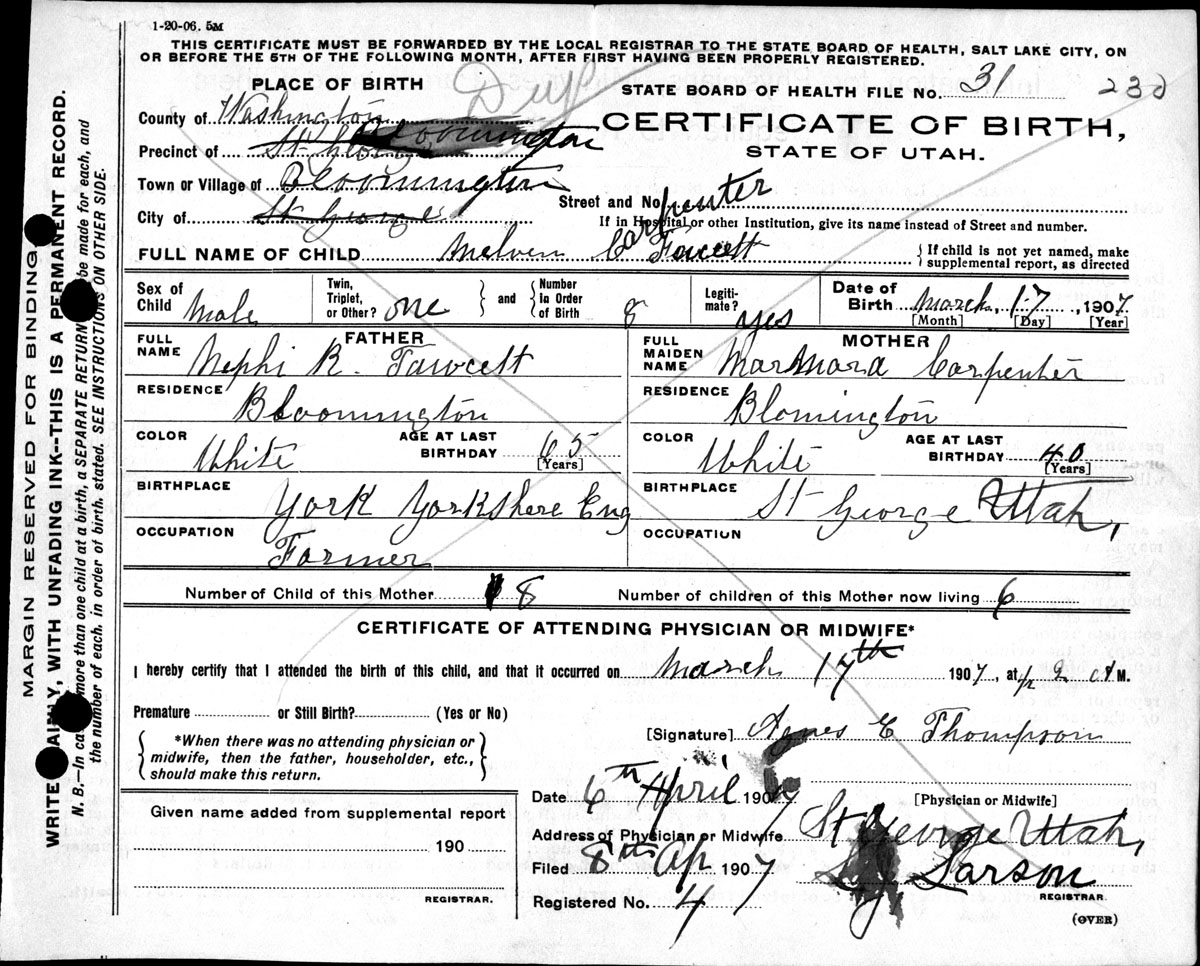 1-20-06. 5M
THIS CERTIFICATE MUST BE FORWARDED BY THE LOCAL REGISTRAR TO THE STATE BOARD OF HEALTH, SALT LAKE CITY, ON
OR BEFORE THE 5TH OF THE FOLLOWING MONTH, AFTER FIRST HAVING BEEN PROPERLY REGISTERED.
PLACE OF BIRTH
Dup
STATE BOARD OF HEALTH FILE No. 31 230
County of Washington
CERTIFICATE OF BIRTH,
Precinct of St George Bloomington
STATE OF UTAH.
Town or Village of Bloomington
Street and No.
City of St George
If in Hospital or other Institution, give its name instead of Street and number.
FULL NAME OF CHILD Melven Carpenter Fawcett
If child is not yet named, make supplemental report, as directed
Sex of Child Male
Twin, Triplet, or Other? one and Number In Order of Birth 8
Legiti-mate? yes
Date of Birth March, 17, 1907
[Month] [Day] [Year]
FATHER
FULL NAME Nephi R. Fawcett
RESIDENCE Bloomington
COLOR White AGE AT LAST BIRTHDAY 65 [Years]
BIRTHPLACE York Yorkshere Eng
OCCUPATION Farmer
MOTHER
FULL MAIDEN NAME Carpenter
RESIDENCE Blomington
COLOR White AGE AT LAST BIRTHDAY 40 [Years]
BIRTHPLACE St George Utah,
OCCUPATION
Number of Child of this Mother 8 Number of children of this Mother now living 6
CERTIFICATE OF ATTENDING PHYSICIAN OR MIDWIFE*
I hereby certify that I attended the birth of this child, and that it occurred on March 17th 1907, at 2 M.
Premature or Still Birth? (Yes or No)
[Signature] Agnes E Thompson
*When there was no attending physician or
midwife, then the father, householder, etc.,
should make this return.
Date 6th April 1907
[Physician or Midwife]
Given name added from supplemental report
190
REGISTRAR.
Address of Physician or Midwife St George Utah,
Filed 8th Ap 1907 Larson
REGISTRAR.
Registered No. 4
(OVER)
MARGIN RESERVED FOR BINDING
WRITE WITH UNFADING INK--THIS IS A PERMANENT RECORD.
N. B.—In more than one child at a birth, a SEPARATE RETURN be made for each, and
the number of each, in order of birth, stated. SEE INSTRUCTIONS ON OTHER SIDE.